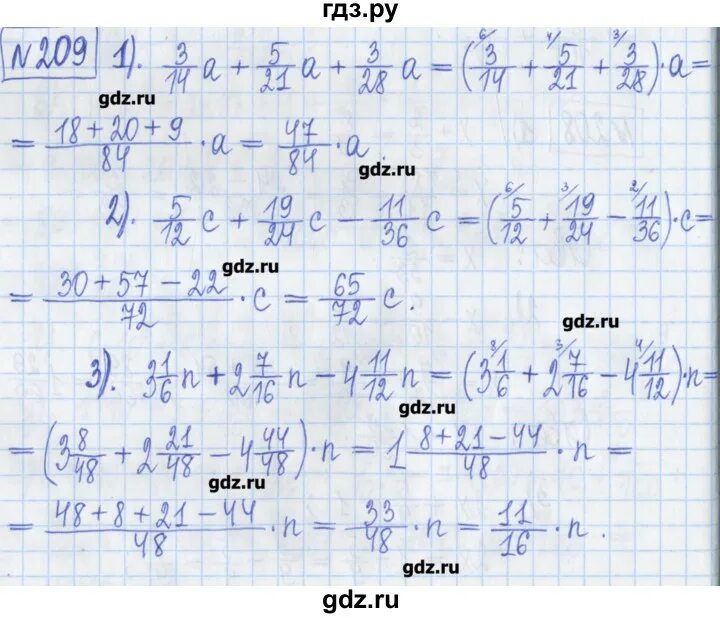 гдз.ру
№209 1). 3/14 a + 5/21 a + 3/28 a = (⁶⁾3/14 + ⁴⁾5/21 + ³⁾3/28)·a =
gdz.ru
gdz.ru
= (18+20+9)/84 · a = 47/84 · a.
gdz.ru
2). 5/12 c + 19/24 c − 11/36 c = (⁶⁾5/12 + ³⁾19/24 − ²⁾11/36)·c =
gdz.ru
= (30+57−22)/72 · c = 65/72 c.
gdz.ru
3). 3 1/6 n + 2 7/16 n − 4 11/12 n = (3 ⁸⁾1/6 + 2 ³⁾7/16 − 4 ⁴⁾11/12)·n =
gdz.ru
= (3 8/48 + 2 21/48 − 4 44/48)·n = 1 (8+21−44)/48 · n =
gdz.ru
= (48+8+21−44)/48 · n = 33/48 · n = 11/16 · n.
gdz.ru
gdz.ru